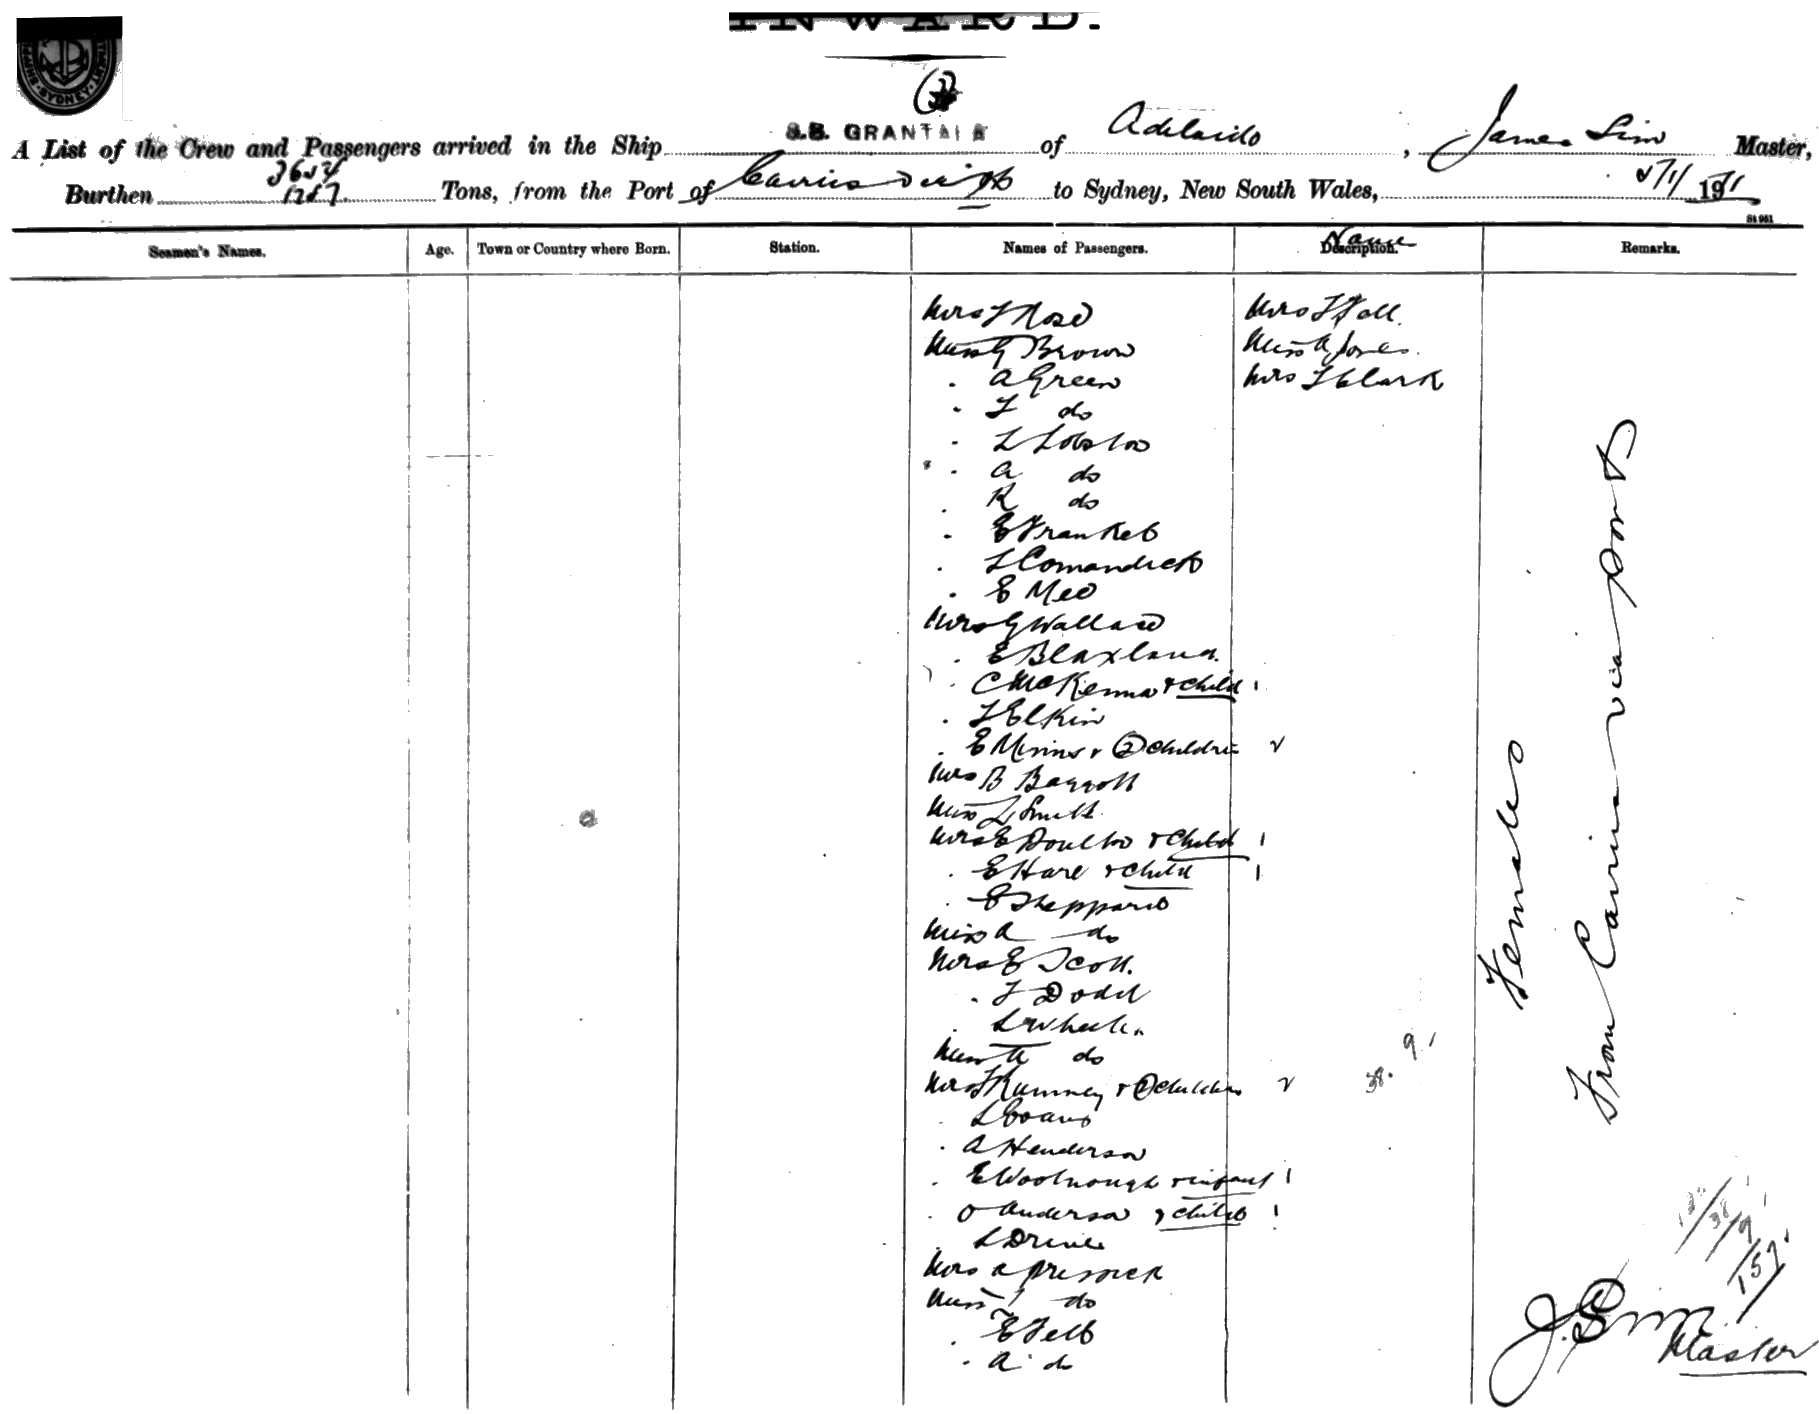 INWARD.
SYDNEY
(3)
A List of the Crew and Passengers arrived in the Ship S.S. GRANTALA of Adelaide, James Sim Master,
Burthen 3654 Tons, from the Port of Cairns to Sydney, New South Wales, 1911
Seamen's Names. Age. Town or Country where Born. Station. Names of Passengers. Description. Name Remarks.
Mrs J Rose
Miss G Brown
. A Green
. J do
. L
. A do
. R do
. E Frankel
. L
. E
Mrs G Wallace
. E Blaxland.
. C McKenna & child 1
. J Elkin
. E & 2 children 2
Mrs B
Miss L Smith
Mrs E Doulton & child 1
. E Hare & child 1
. E Sheppard
Miss A do
Mrs E Scott.
. J Dodd
. L
Miss do
Mrs & 2 children 2
. L Evans
. A Henderson
. E Woolnough & infant 1
. O Anderson & child 1
. L
Mrs A
Miss do
. E
. A do
Mrs
Miss A Jones.
Mrs J Clark
9
38.
Females
From Cairns via ports
38
9
157
J. Sim
Master